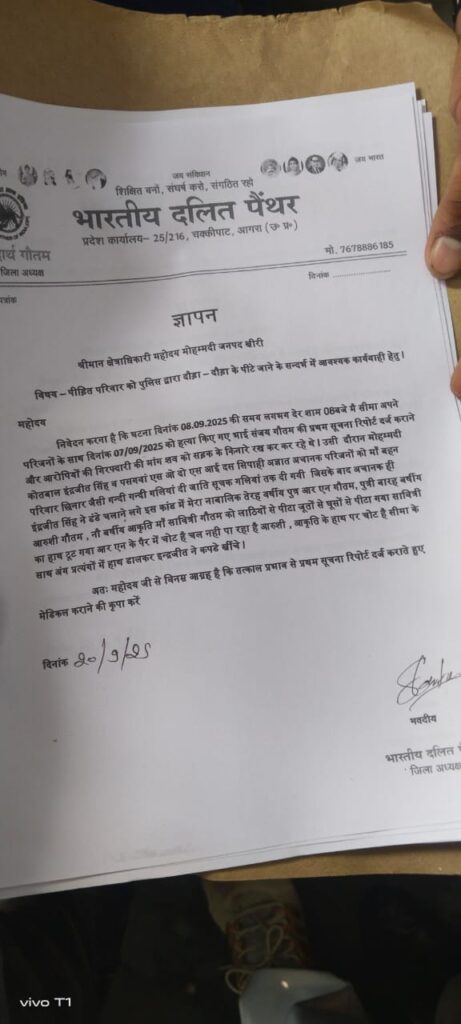 जय संविधान
जय भारत
शिक्षित बनो, संघर्ष करो, संगठित रहो
भारतीय दलित पैंथर
प्रदेश कार्यालय– 25/216, चक्कीपाट, आगरा (उ० प्र०)
गौतम
जिला अध्यक्ष
मो. 7678886185
पत्रांक
दिनांक ....................
ज्ञापन
श्रीमान क्षेत्राधिकारी महोदय मोहम्मदी जनपद खीरी
विषय – पीड़ित परिवार को पुलिस द्वारा दौड़ा – दौड़ा के पीटे जाने के सन्दर्भ में आवश्यक कार्यवाही हेतु।
महोदय
निवेदन करना है कि घटना दिनांक 08.09.2025 की समय लगभग देर शाम 08बजे मै सीमा अपने
परिजनों के साथ दिनांक 07/09/2025 को हत्या किए गए भाई संजय गौतम की प्रथम सूचना रिपोर्ट दर्ज कराने
और आरोपियों की गिरफ्तारी की मांग शव को सड़क के किनारे रख कर कर रहे थे। उसी दौरान मोहम्मदी
कोतवाल इंद्रजीत सिंह व पसगवां एस ओ दो एस आई दस सिपाही अज्ञात अचानक परिजनों को माँ बहन
परिवार छिनार जैसी गन्दी गन्दी गलियां दी जाति सूचक गलियां तक दी गयी जिसके बाद अचानक ही
इंद्रजीत सिंह ने डंडे चलाने लगे इस कांड में मेरा नाबालिक तेरह वर्षीय पुत्र आर एन गौतम, पुत्री बारह वर्षीय
आरुशी गौतम , नौ वर्षीय आकृति माँ सावित्री गौतम को लाठियों से पीटा जूतों से घूसों से पीटा गया सावित्री
का हाथ टूट गया आर एन के पैर में चोट है चल नही पा रहा है आरुशी , आकृति के हाथ पर चोट है सीमा के
साथ अंग प्रत्यंगों में हाथ डालकर इन्द्रजीत ने कपडे खींचे।
अतः महोदय जी से विनम्र आग्रह है कि तत्काल प्रभाव से प्रथम सूचना रिपोर्ट दर्ज कराते हुए
मेडिकल कराने की कृपा करें
दिनांक 20/9/25
भवदीय
भारतीय दलित
जिला अध्यक्ष
vivo T1